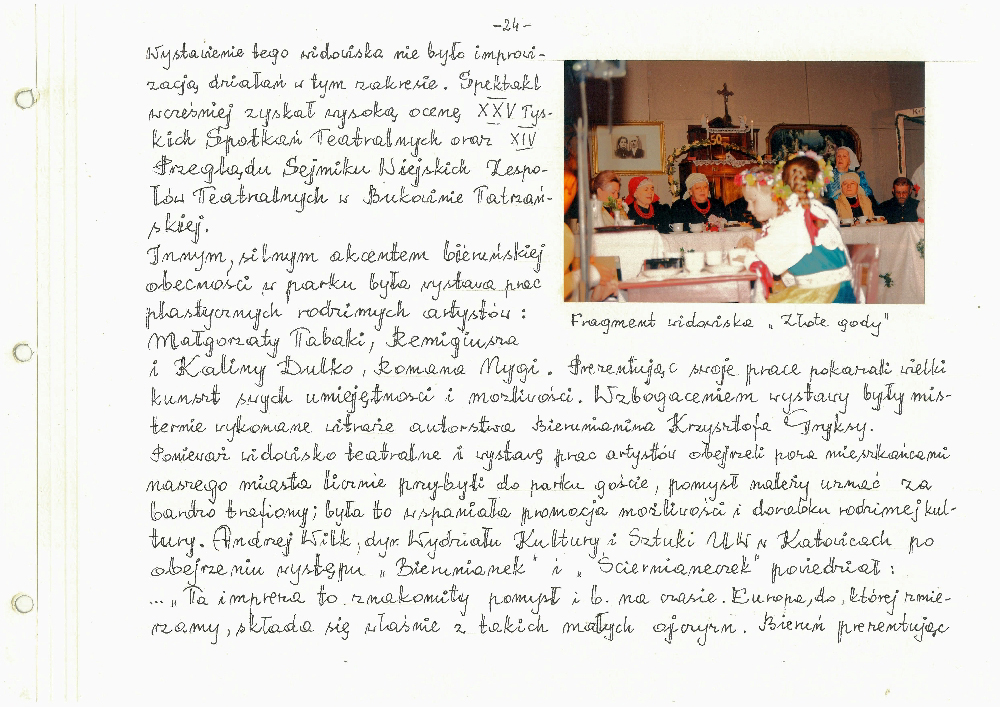 -24-
Wystawienie tego widowiska nie było improwi-
zacją działań w tym zakresie. Spektakl
wcześniej zyskał wysoką ocenę XXV Tys-
kich Spotkań Teatralnych oraz XIV
Przeglądu Sejmiku Wiejskich Zespo-
łów Teatralnych w Bukowinie Tatrzań-
skiej.
Innym, silnym akcentem bieruńskiej
obecności w parku była wystawa prac
plastycznych rodzimych artystów:
Małgorzaty Tabaki, Remigiusza
Fragment widowiska „Złote gody"
i Kaliny Dulko, Romana Nygi. Prezentując swoje prace pokazali wielki
kunszt swych umiejętności i możliwości. Wzbogaceniem wystawy były mis-
ternie wykonane witraże autorstwa Bierunianina Krzysztofa Gryksy.
Ponieważ widowisko teatralne i wystawę prac artystów obejrzeli poza mieszkańcami
naszego miasta licznie przybyli do parku goście, pomysł należy uznać za
bardzo trafiony; była to wspaniała promocja możliwości i dorobku rodzimej kul-
tury. Andrzej Wilk, dyr. Wydziału Kultury i Sztuki UW w Katowicach po
obejrzeniu występu „Bierunianek" i „Ściernianeczek" powiedział:
... „Ta impreza to znakomity pomysł i b. na czasie. Europa, do, której zmie-
rzamy, składa się właśnie z takich małych ojczyzn. Bieruń prezentując